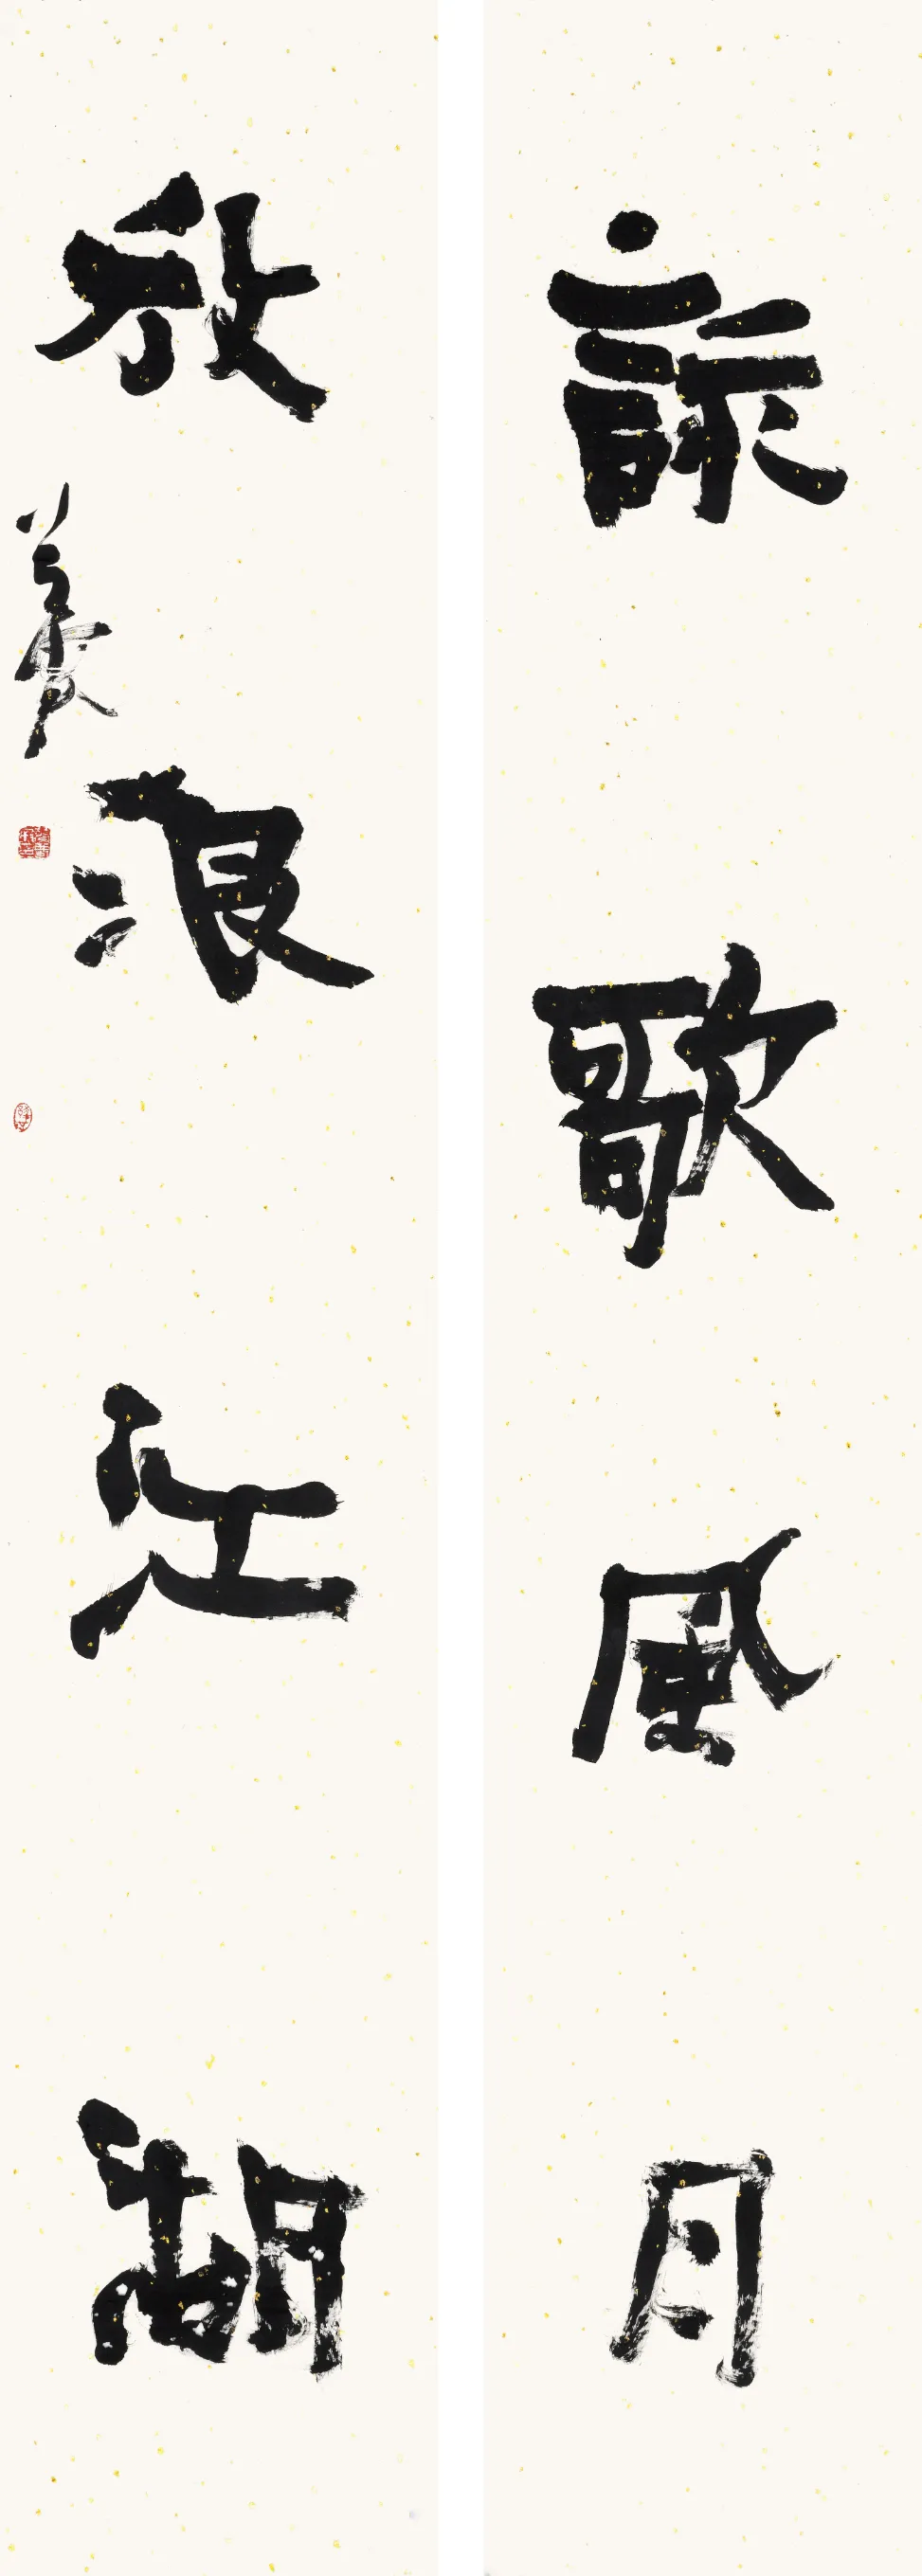 詠歌風月
放浪江湖